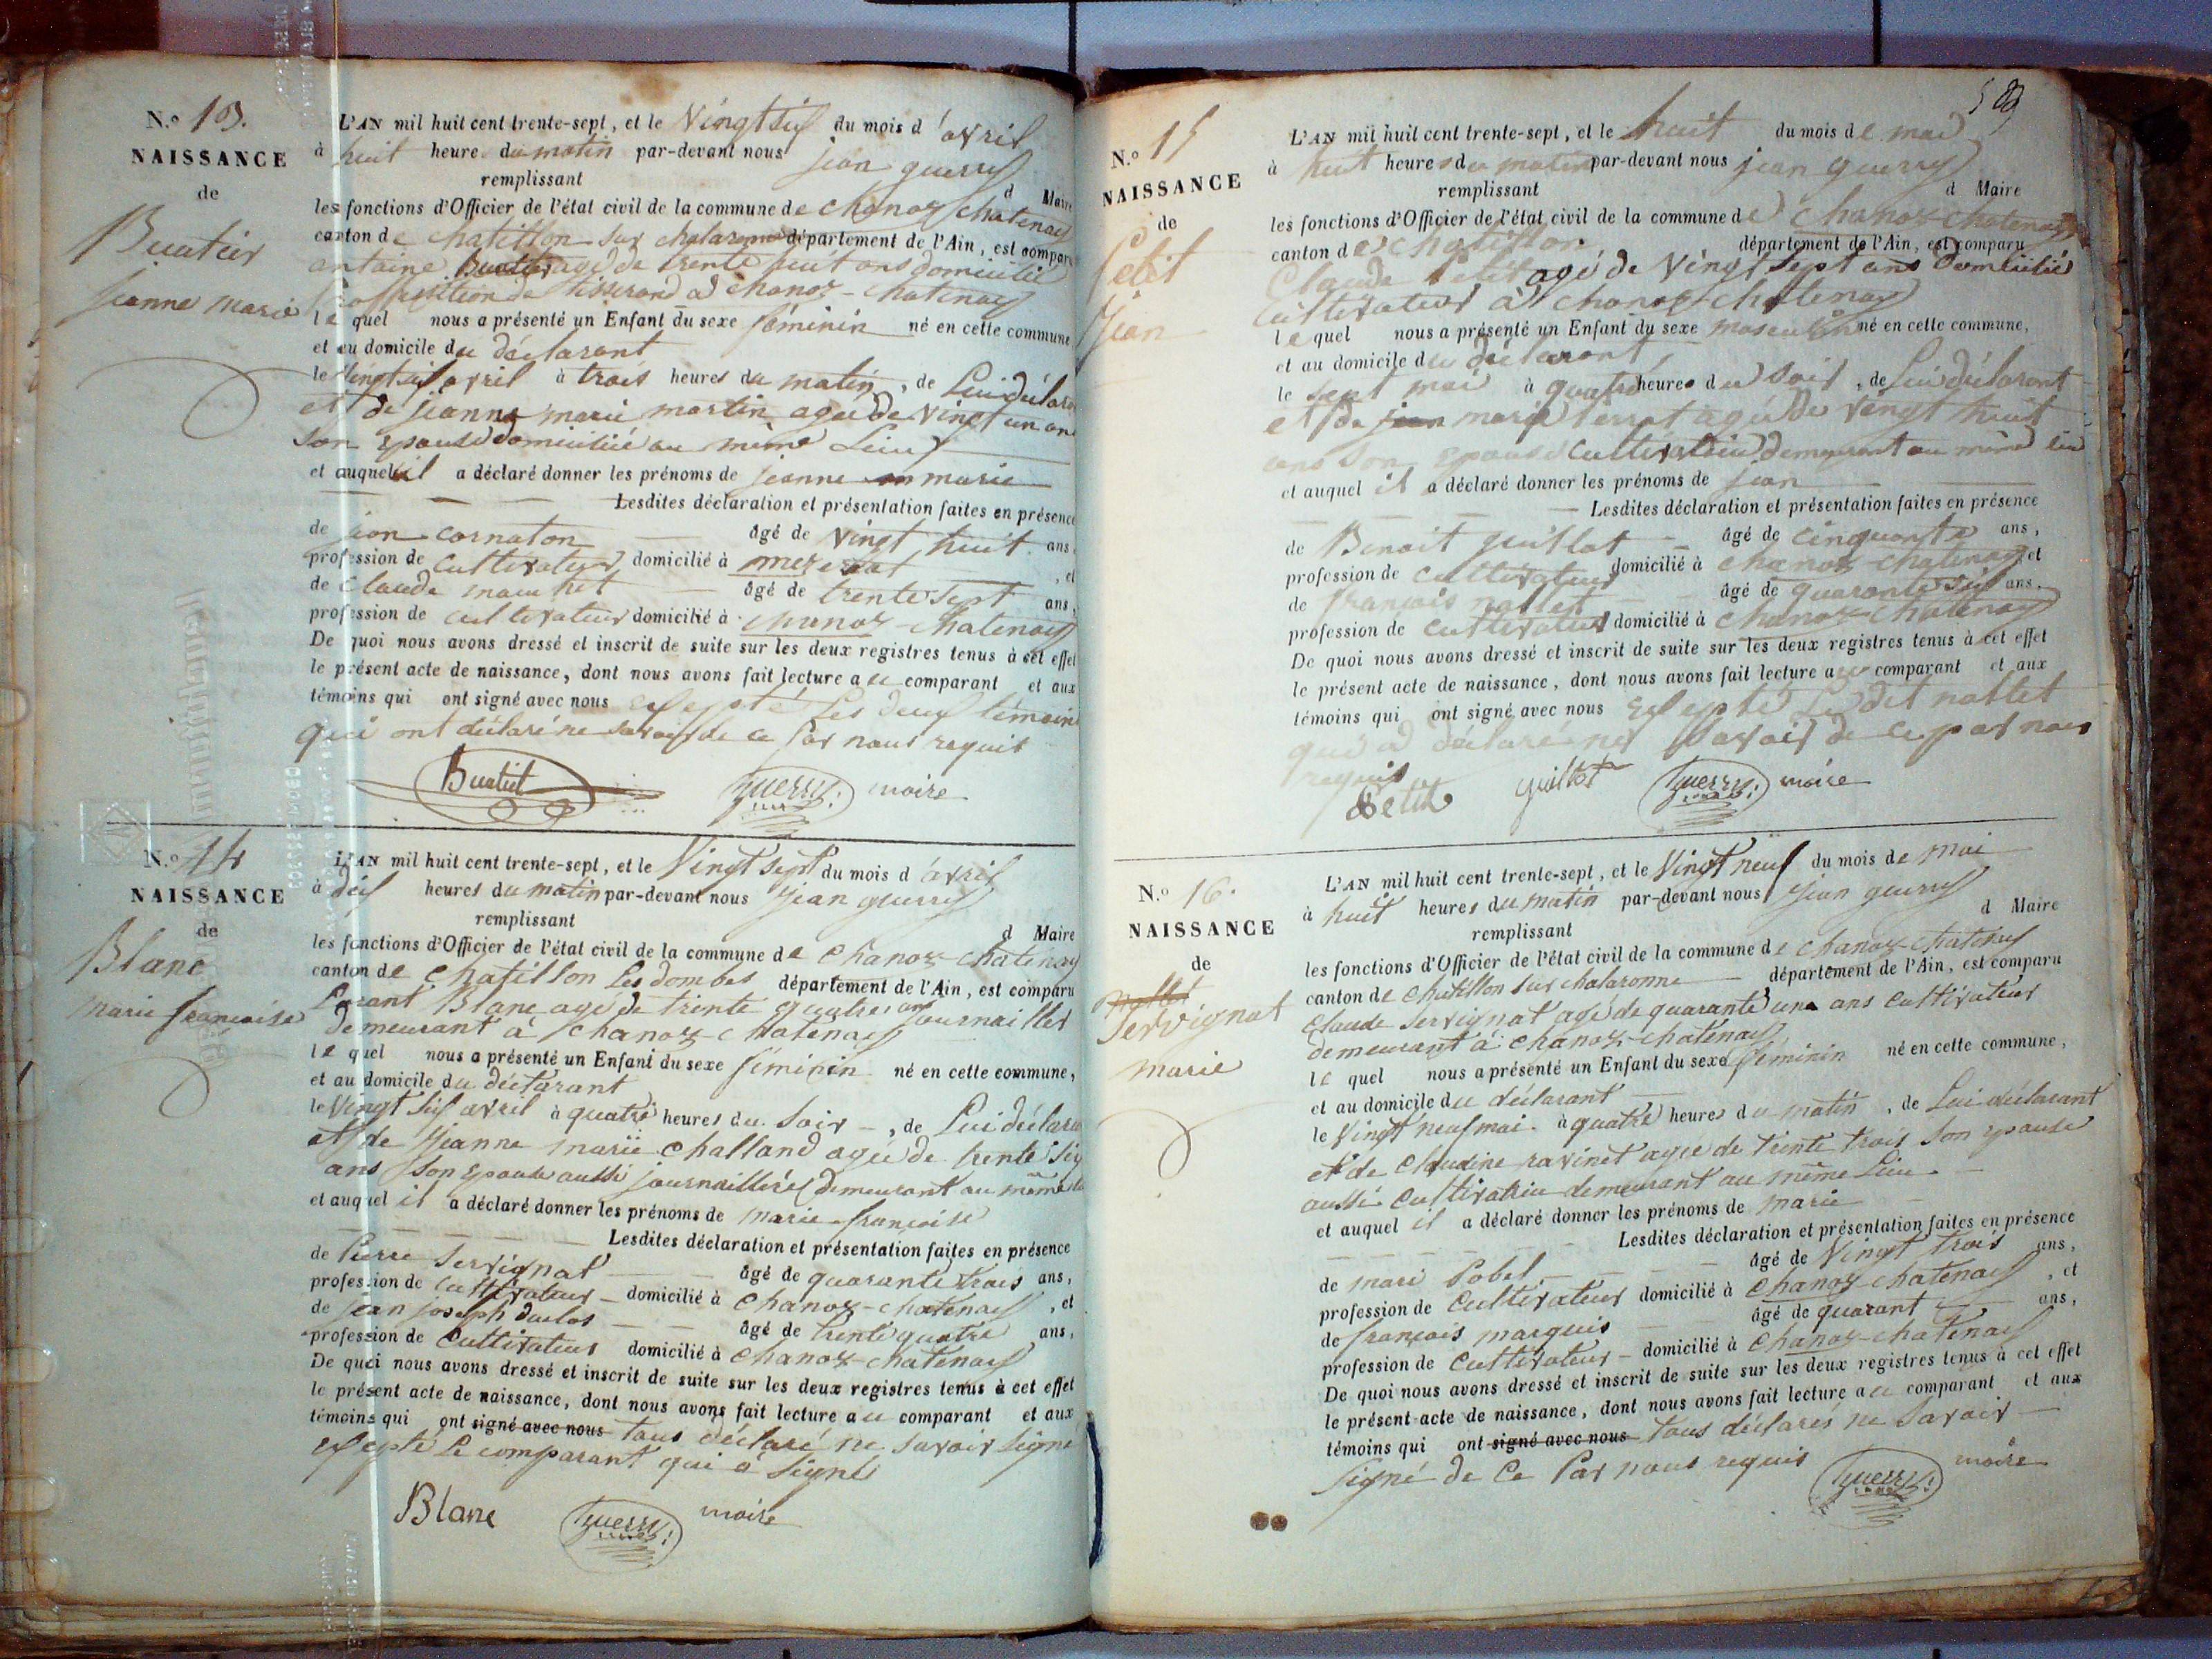 N.o 13.
NAISSANCE
de
Buatier
jeanne marie
L'AN mil huit cent trente-sept, et le vingt six du mois d'avril
à huit heure du matin par-devant nous jean guerry
remplissant d Maire
les fonctions d'Officier de l'état civil de la commune de chanoz chatenay
canton de chatillon sur chalaronne département de l'Ain, est comparu
antoine Buatier agé de trente huit ans domicilié
proffession de tisserand a chanoz-chatenay
le quel nous a présenté un Enfant du sexe féminin né en cette commune
et au domicile du déclarant
le vingt six avril à trois heures du matin, de Lui déclarant
et de jeanne marie martin agée de vingt un an
son epouse domiciliée au même Lieu
et auquel il a déclaré donner les prénoms de jeanne marie
Lesdites déclaration et présentation faites en présence
de jean cornaton âgé de vingt huit ans,
profession de cultivateur, domicilié à mezeriat, et
de claude âgé de trente sept ans,
profession de cultivateur domicilié à chanoz-chatenay
De quoi nous avons dressé et inscrit de suite sur les deux registres tenus à cet effet
le présent acte de naissance, dont nous avons fait lecture au comparant et aux
témoins qui ont signé avec nous excepté Les deux témoins
qui ont déclaré ne savoir de ce par nous requit
Buatier guerry maire
N.o 14
NAISSANCE
de
Blanc
marie françoise
L'AN mil huit cent trente-sept, et le Vingt sept du mois d'avril
à dix heures du matin par-devant nous jean guerry
remplissant d Maire
les fonctions d'Officier de l'état civil de la commune de chanoz-chatenay
canton de chatillon Les dombes département de l'Ain, est comparu
Blanc agé de trente quatre ans journaillier
demeurant à chanoz-chatenay
le quel nous a présenté un Enfant du sexe féminin né en cette commune,
et au domicile du déclarant
le vingt six avril à quatre heures du soir, de Lui déclarant
et de jeanne marie challand agée de trente six
ans son epouse aussi journaillière demeurant au même
et auquel il a déclaré donner les prénoms de marie françoise
Lesdites déclaration et présentation faites en présence
de Pierre Servignat âgé de quarante trois ans,
profession de cultivateur domicilié à chanoz-chatenay, et
de jean joseph duclos âgé de trente quatre ans,
profession de cultivateur domicilié à chanoz-chatenay
De quoi nous avons dressé et inscrit de suite sur les deux registres tenus à cet effet
le présent acte de naissance, dont nous avons fait lecture au comparant et aux
témoins qui ont signé avec nous tous déclaré ne savoir signé
excepté Le comparant qui a signé
Blanc guerry maire
N.o 15
NAISSANCE
de
Petit
jean
L'AN mil huit cent trente-sept, et le huit du mois de mai
à huit heures du matin par-devant nous jean guerry
remplissant d Maire
les fonctions d'Officier de l'état civil de la commune de chanoz-chatenay
canton de chatillon département de l'Ain, est comparu
Claude Petit agé de Vingt sept ans domicilié
cultivateur à chanoz-chatenay
le quel nous a présenté un Enfant du sexe masculin né en cette commune,
et au domicile du déclarant,
le sept mai à quatre heures du soir, de Lui déclarant
et de jean marie terrat agée de vingt huit
ans son epouse cultivatrice demeurant au même lieu
et auquel il a déclaré donner les prénoms de jean
Lesdites déclaration et présentation faites en présence
de Benoit guillot âgé de cinquante ans,
profession de cultivateur domicilié à chanoz-chatenay et
de françois nallet âgé de quarante six ans,
profession de cultivateur domicilié à chanoz-chatenay
De quoi nous avons dressé et inscrit de suite sur les deux registres tenus à cet effet
le présent acte de naissance, dont nous avons fait lecture au comparant et aux
témoins qui ont signé avec nous Excepté Le dit nallet
qui a déclaré ne savoir de ce par nous
requis
Petit guillot guerry maire
N.o 16.
NAISSANCE
de
nallet
Servignat
marie
L'AN mil huit cent trente-sept, et le Vingt neuf du mois de mai
à huit heures du matin par-devant nous jean guerry
remplissant d Maire
les fonctions d'Officier de l'état civil de la commune de chanoz-chatenay
canton de chatillon sur chalaronne département de l'Ain, est comparu
claude servignat agé de quarante un ans cultivateur
demeurant à chanoz-chatenay
le quel nous a présenté un Enfant du sexe féminin né en cette commune,
et au domicile du déclarant
le vingt neuf mai à quatre heures du matin, de Lui déclarant
et de claudine ravinet agée de trente trois son epouse
aussi cultivatrice demeurant au même Lieu
et auquel il a déclaré donner les prénoms de marie
Lesdites déclaration et présentation faites en présence
de mari Pobel âgé de Vingt trois ans,
profession de cultivateur domicilié à chanoz-chatenay, et
de françois marquis âgé de quarant ans,
profession de cultivateur domicilié à chanoz-chatenay
De quoi nous avons dressé et inscrit de suite sur les deux registres tenus à cet effet
le présent acte de naissance, dont nous avons fait lecture au comparant et aux
témoins qui ont signé avec nous tous déclarés ne savoir
signé de ce Par nous requis
guerry maire